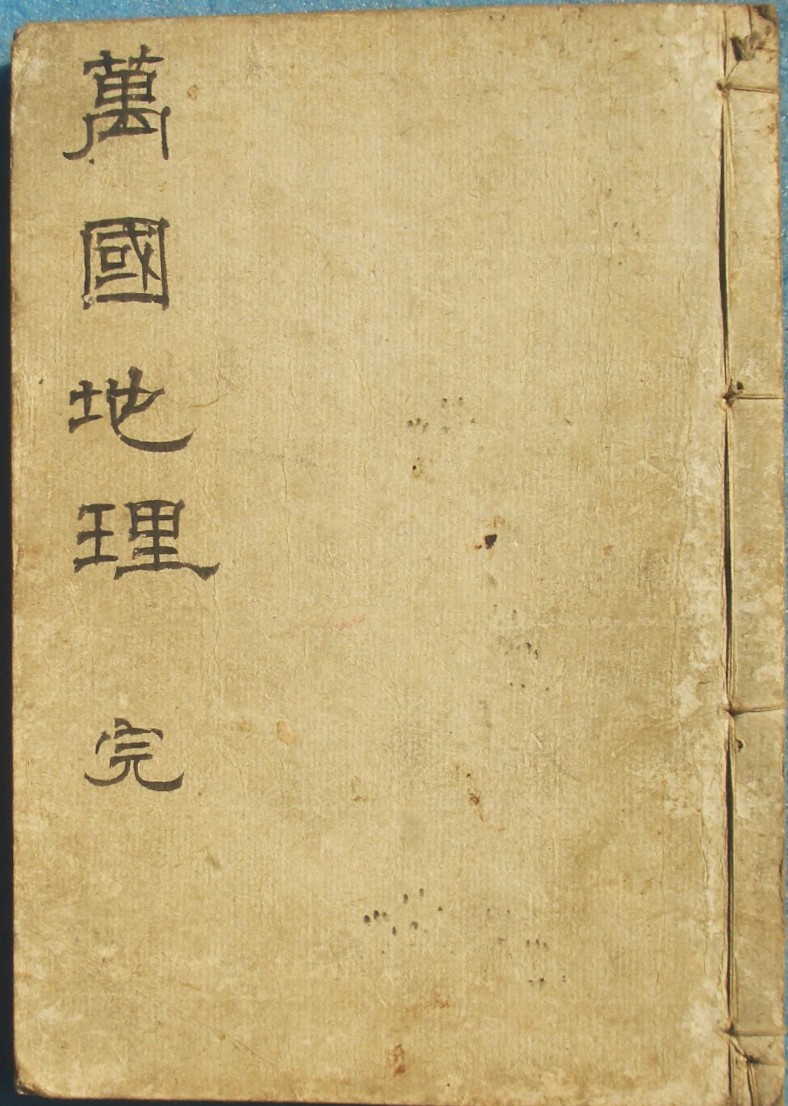 萬國地理 完